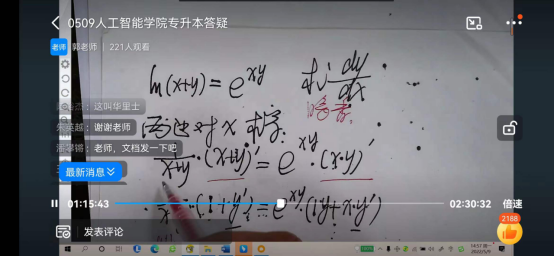 0509人工智能学院专升本答疑
老师 郭老师 | 221人观看
ln(x+y) = e^{xy} 求 dy/dx
杰：这叫华里士
朱英越：谢谢老师
两边对x求导:
锵：老师，文档发一下吧
\frac{1}{x+y}·(x+y)' = e^{xy}·(x·y)'
最新消息
(1+y') = e^{xy}·(1y+x·y')
01:15:43
02:30:32 倍速
2188
发表评论
14:57
2022/5/9